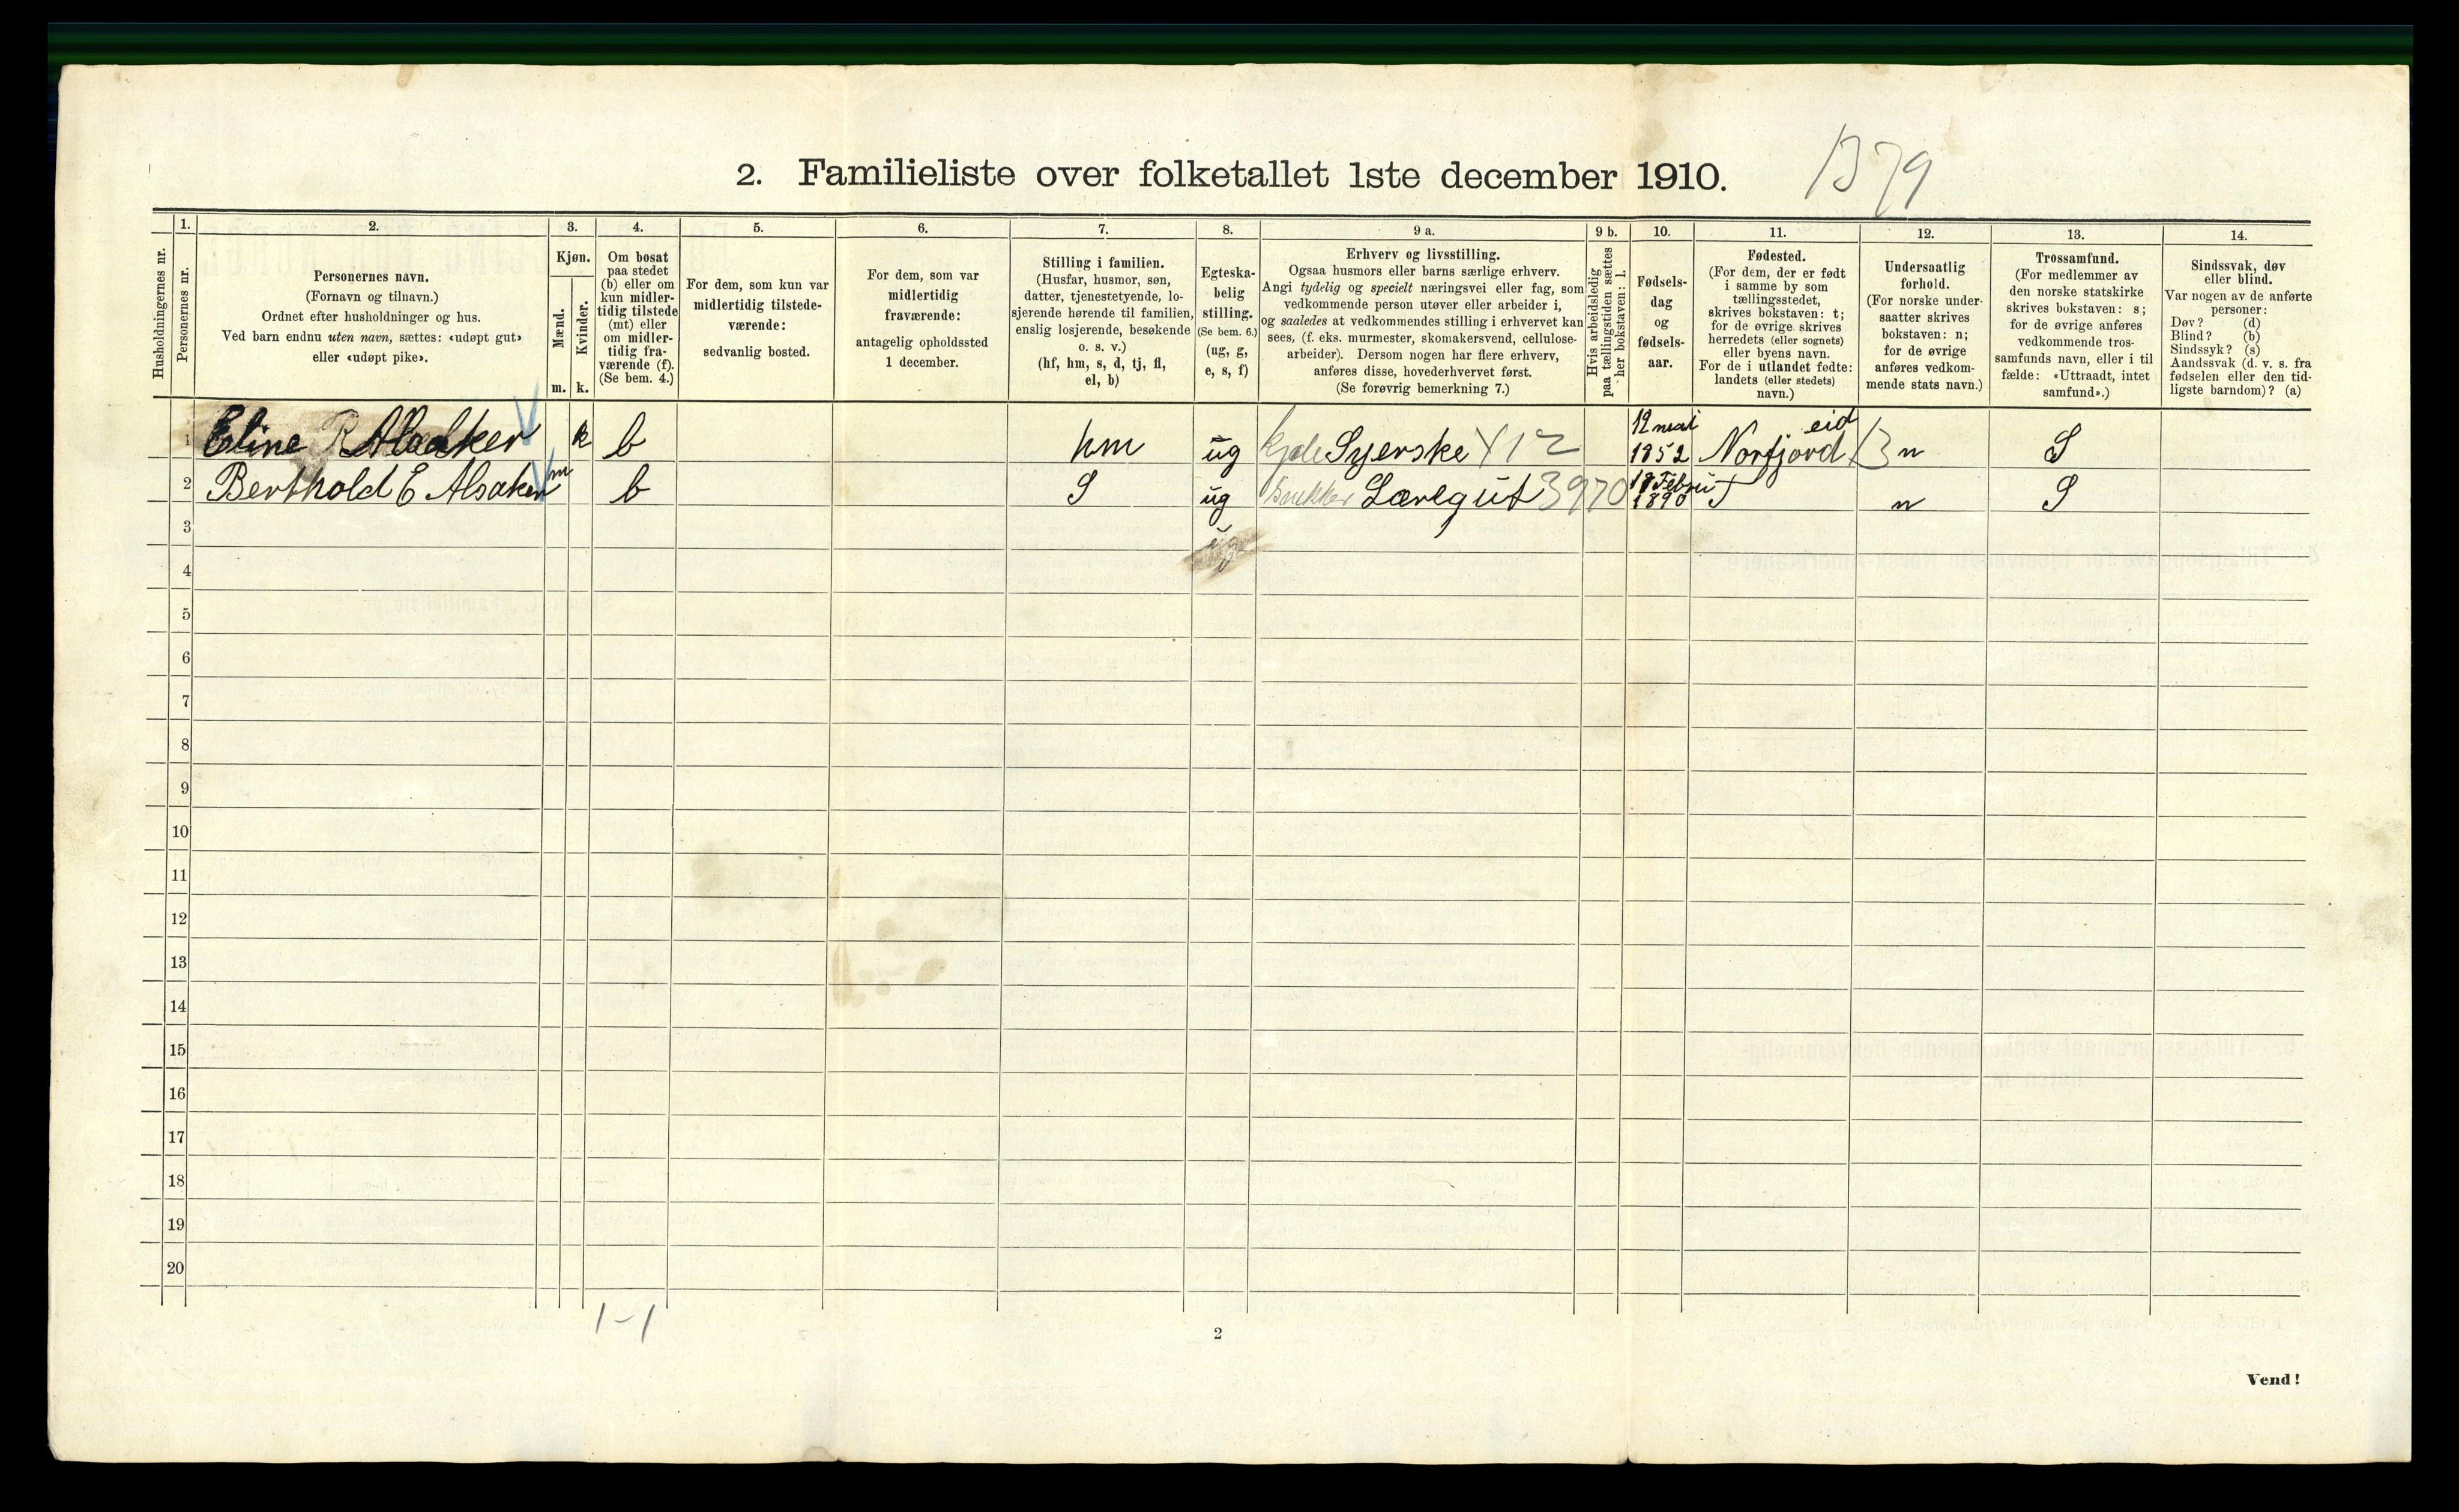 2. Familieliste over folketallet 1ste december 1910.
1379
Husholdningernes nr.
1.
Personernes nr.
2.
Personernes navn.
(Fornavn og tilnavn.)
Ordnet efter husholdninger og hus.
Ved barn endnu uten navn, sættes: «udøpt gut»
eller «udøpt pike».
3.
Kjøn.
Mænd.
Kvinder.
m. k.
4.
Om bosat
paa stedet
(b) eller om
kun midler-
tidig tilstede
(mt) eller
om midler-
tidig fra-
værende (f).
(Se bem. 4.)
5.
For dem, som kun var
midlertidig tilstede-
værende:
sedvanlig bosted.
6.
For dem, som var
midlertidig
fraværende:
antagelig opholdssted
1 december.
7.
Stilling i familien.
(Husfar, husmor, søn,
datter, tjenestetyende, lo-
sjerende hørende til familien,
enslig losjerende, besøkende
o. s. v.)
(hf, hm, s, d, tj, fl,
el, b)
8.
Egteska-
belig
stilling.
(Se bem. 6.)
(ug, g,
e, s, f)
9 a.
Erhverv og livsstilling.
Ogsaa husmors eller barns særlige erhverv.
Angi tydelig og specielt næringsvei eller fag, som
vedkommende person utøver eller arbeider i,
og saaledes at vedkommendes stilling i erhvervet kan
sees, (f. eks. murmester, skomakersvend, cellulose-
arbeider). Dersom nogen har flere erhverv,
anføres disse, hovederhvervet først.
(Se forøvrig bemerkning 7.)
9 b.
Hvis arbeidsledig
paa tællingstiden sættes
her bokstaven: l.
10.
Fødsels-
dag
og
fødsels-
aar.
11.
Fødested.
(For dem, der er født
i samme by som
tællingsstedet,
skrives bokstaven: t;
for de øvrige skrives
herredets (eller sognets)
eller byens navn.
For de i utlandet fødte:
landets (eller stedets)
navn.)
12.
Undersaatlig
forhold.
(For norske under-
saatter skrives
bokstaven: n;
for de øvrige
anføres vedkom-
mende stats navn.)
13.
Trossamfund.
(For medlemmer av
den norske statskirke
skrives bokstaven: s;
for de øvrige anføres
vedkommende tros-
samfunds navn, eller i til
fælde: «Uttraadt, intet
samfund».)
14.
Sindssvak, døv
eller blind.
Var nogen av de anførte
personer:
Døv? (d)
Blind? (b)
Sindssyk? (s)
Aandssvak (d. v. s. fra
fødselen eller den tid-
ligste barndom)? (a)
1 Eline R Alsaker k b hm ug kjole Syerske X12 12 mai 1852 Norfjord eid 13 n S
2 Berthold E Alsaker m b S ug Lærlgut 3970 18 Febru 1890 T n S
3 ug
4
5
6
7
8
9
10
11
12
13
14
15
16
17
18
19
20
1-1
2
Vend!